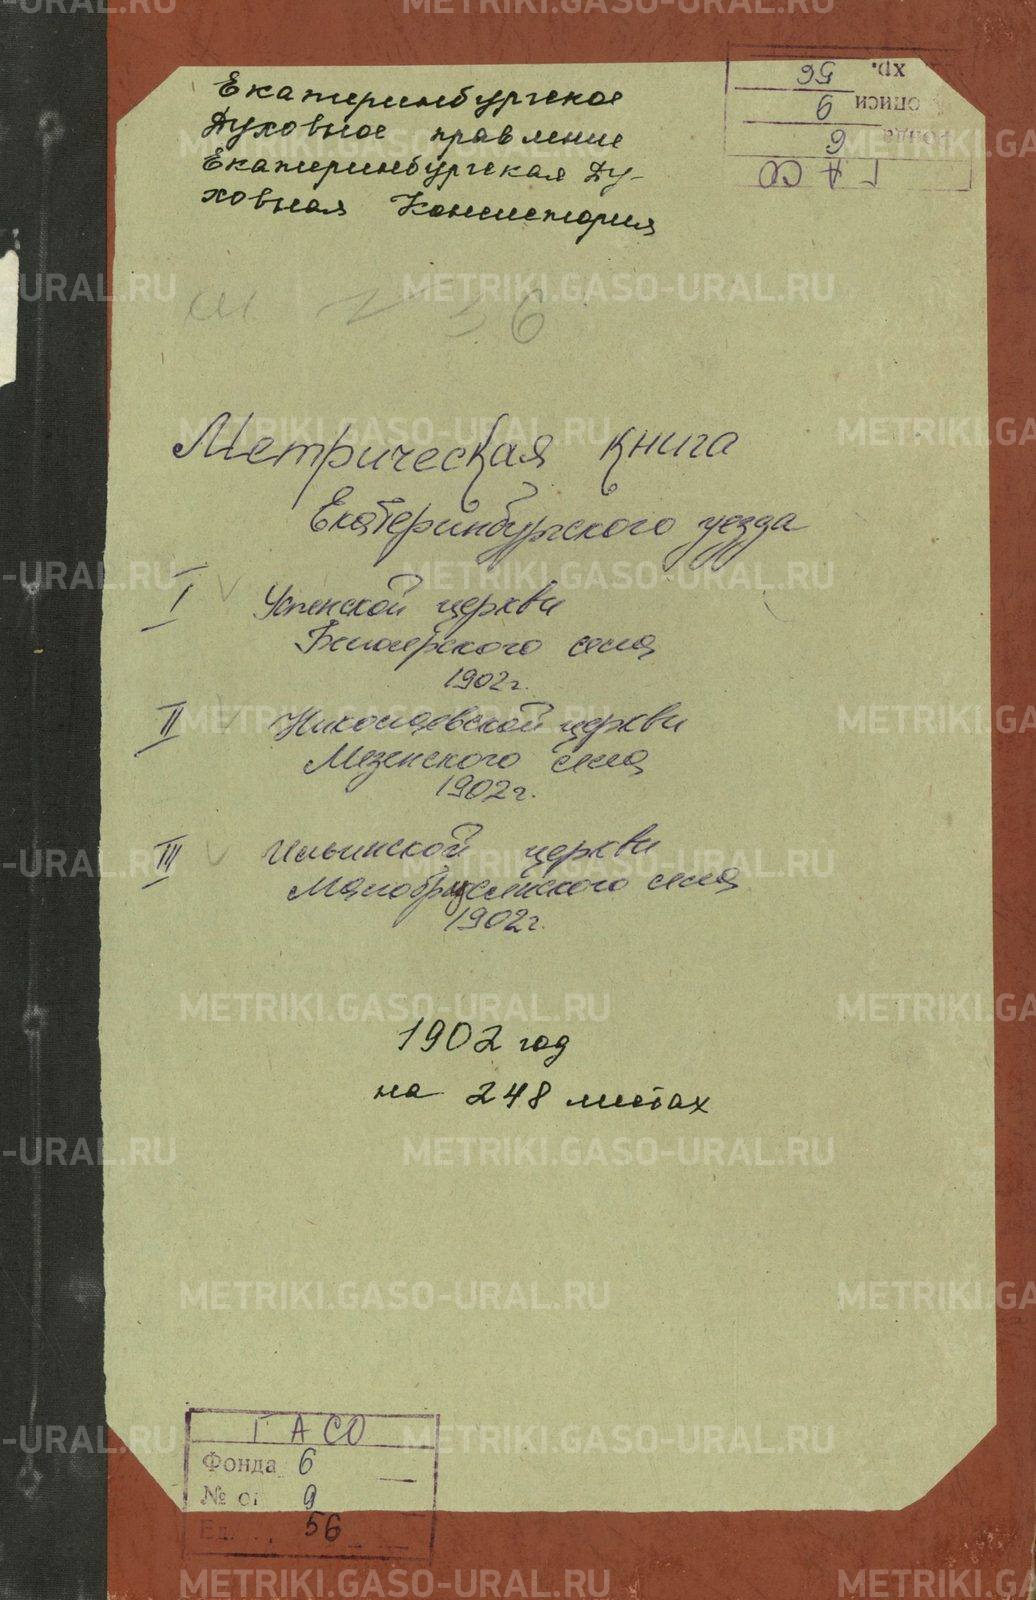 Екатеринбургское
Духовное правление
Екатеринбургская Ду-
ховная Консистория
хр. 56
описи 9
фонда 6
ГАСО
36
Метрическая книга
Екатеринбургского уезда
I Успенской церкви
Белоярского села
1902г.
II Николаевской церкви
Мезенского села
1902г.
III Ильинской церкви
Малобрусянского села
1902г.
1902 год
на 248 листах
ГАСО
Фонда 6
№ оп 9
Ед. 56
METRIKI.GASO-URAL.RU